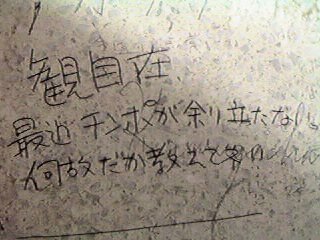 観自在
最近チンポが余り立たない
何故だか教えて下さい